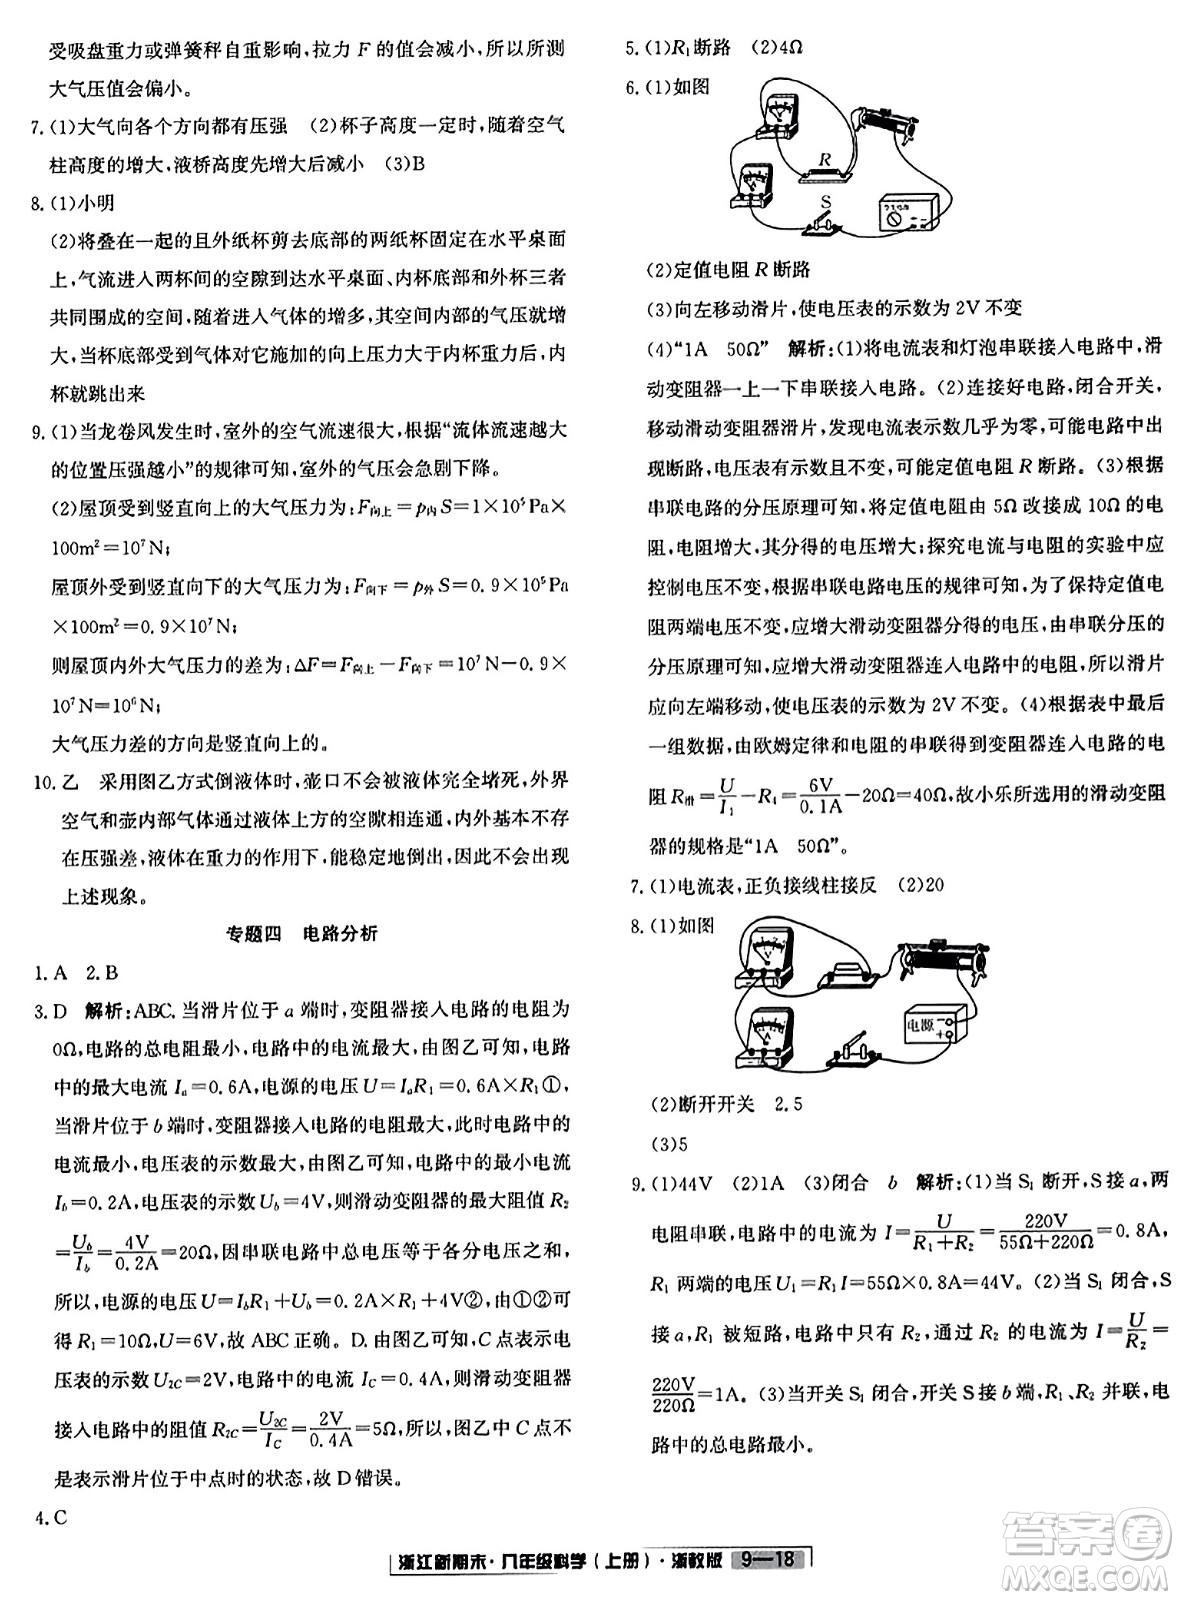 受吸盘重力或弹簧秤自重影响,拉力 F 的值会减小,所以所测
大气压值会偏小。
7. (1)大气向各个方向都有压强 (2)杯子高度一定时,随着空气
柱高度的增大,液桥高度先增大后减小 (3)B
8. (1)小明
(2)将叠在一起的且外纸杯剪去底部的两纸杯固定在水平桌面
上,气流进入两杯间的空隙到达水平桌面、内杯底部和外杯三者
共同围成的空间,随着进入气体的增多,其空间内部的气压变
大,当杯底部受到气体对它施加的向上压力大于内杯重力时,内
杯就跳出来
9. (1)当龙卷风发生时,室外的空气流速很大,根据“流体流速越大
的位置压强越小”的规律可知,室外的气压会急剧下降。
(2)屋顶受到竖直向上的大气压力为:F向上=p内S=1×10⁵Pa×
100m²=10⁷N;
屋顶外受到竖直向下的大气压力为:F向下=p外S=0.9×10⁵Pa
×100m²=0.9×10⁷N;
则屋顶内外大气压力的差为:ΔF=F向上-F向下=10⁷N-0.9×
10⁷N=10⁶N;
大气压力差的方向是竖直向上的。
10. 乙 采用图乙方式倒液体时,壶口不会被液体完全堵死,外界
空气和壶内部气体通过液体上方的空隙相连通,内外基本不存
在压强差,液体在重力的作用下,能稳定地倒出,因此不会出现
上述现象。
专题四 电路分析
1. A 2. B
3. D 解析:ABC. 当滑片位于 a 端时,变阻器接入电路的电阻为
0Ω,电路的总电阻最小,电路中的电流最大。由图乙可知,电路
中的最大电流 Iₐ=0.6A,电源的电压 U=IₐR₁=0.6A×R₁①,
当滑片位于 b 端时,变阻器接入电路的电阻最大,此时电路中的
电流最小,电压表的示数最大。由图乙可知,电路中的最小电流
I_b=0.2A,电压表的示数 U_b=4V,则滑动变阻器的最大阻值 R₂
=U_b/I_b=4V/0.2A=20Ω,因串联电路中总电压等于各分电压之和,
所以,电源的电压 U=I_bR₁+U_b=0.2A×R₁+4V②,由①②可
得 R₁=10Ω,U=6V,故 ABC 正确。D. 由图乙可知,C 点表示电
压表的示数 U₂C=2V,电路中的电流 I_C=0.4A,滑动变阻器
接入电路中的阻值 R₂C=U₂C/I_C=2V/0.4A=5Ω,故图乙中 C 点不
是表示滑片位于中点时的状态,故 D 错误。
4. C
5. (1)R₁断路 (2)4Ω
6. (1)如图
R
S
(2)定值电阻 R 断路
(3)向左移动滑片,使电压表的示数为 2V 不变
(4)“1A 50Ω” 解析:(1)将电流表和灯泡串联接入电路中,滑
动变阻器一上一下串联接入电路。(2)连接好电路,闭合开关,
移动滑动变阻器滑片,发现电流表示数几乎为零,可能电路中出
现断路,电压表有示数且不变,可能定值电阻 R 断路。(3)根据
串联电路的分压原理可知,将定值电阻由 5Ω 改接成 10Ω 的电
阻,电阻增大,其分得的电压增大;探究电流与电阻的实验中应
控制电压不变,根据串联电路电压的规律可知,为了保持定值电
阻两端电压不变,应增大滑动变阻器分得的电压,由串联电路的
分压原理可知,应增大滑动变阻器连入电路中的电阻,所以滑片
应向左端移动,使电压表的示数为 2V 不变。(4)根据表中最后
一组数据,由欧姆定律和电阻的串联得到变阻器连入电路的电
阻 R滑=U/I₁-R₄=6V/0.1A-20Ω=40Ω,故小乐所选用的滑动变阻
器的规格是“1A 50Ω”。
7. (1)电流表,正负接线柱接反 (2)20
8. (1)如图
电源
(2)断开开关 2.5
(3)5
9. (1)44V (2)1A (3)闭合 b 解析:(1)当 S₁ 断开,S 接 a,两
电阻串联,电路中的电流为 I=U/(R₁+R₂)=220V/(55Ω+220Ω)=0.8A,
R₁ 两端的电压 U₁=R₁I=55Ω×0.8A=44V。(2)当 S₁ 闭合,S
接 a,R₁ 被短路,电路中只有 R₂,通过 R₂ 的电流为 I=U/R₂=
220V/220Ω=1A。(3)当开关 S₁ 闭合,开关 S 接 b 端,R₁、R₂ 并联,电
路中的总电路最小。
浙江新期末·八年级科学(上册)·浙教版 9—18
作业精灵
MXQE.COM